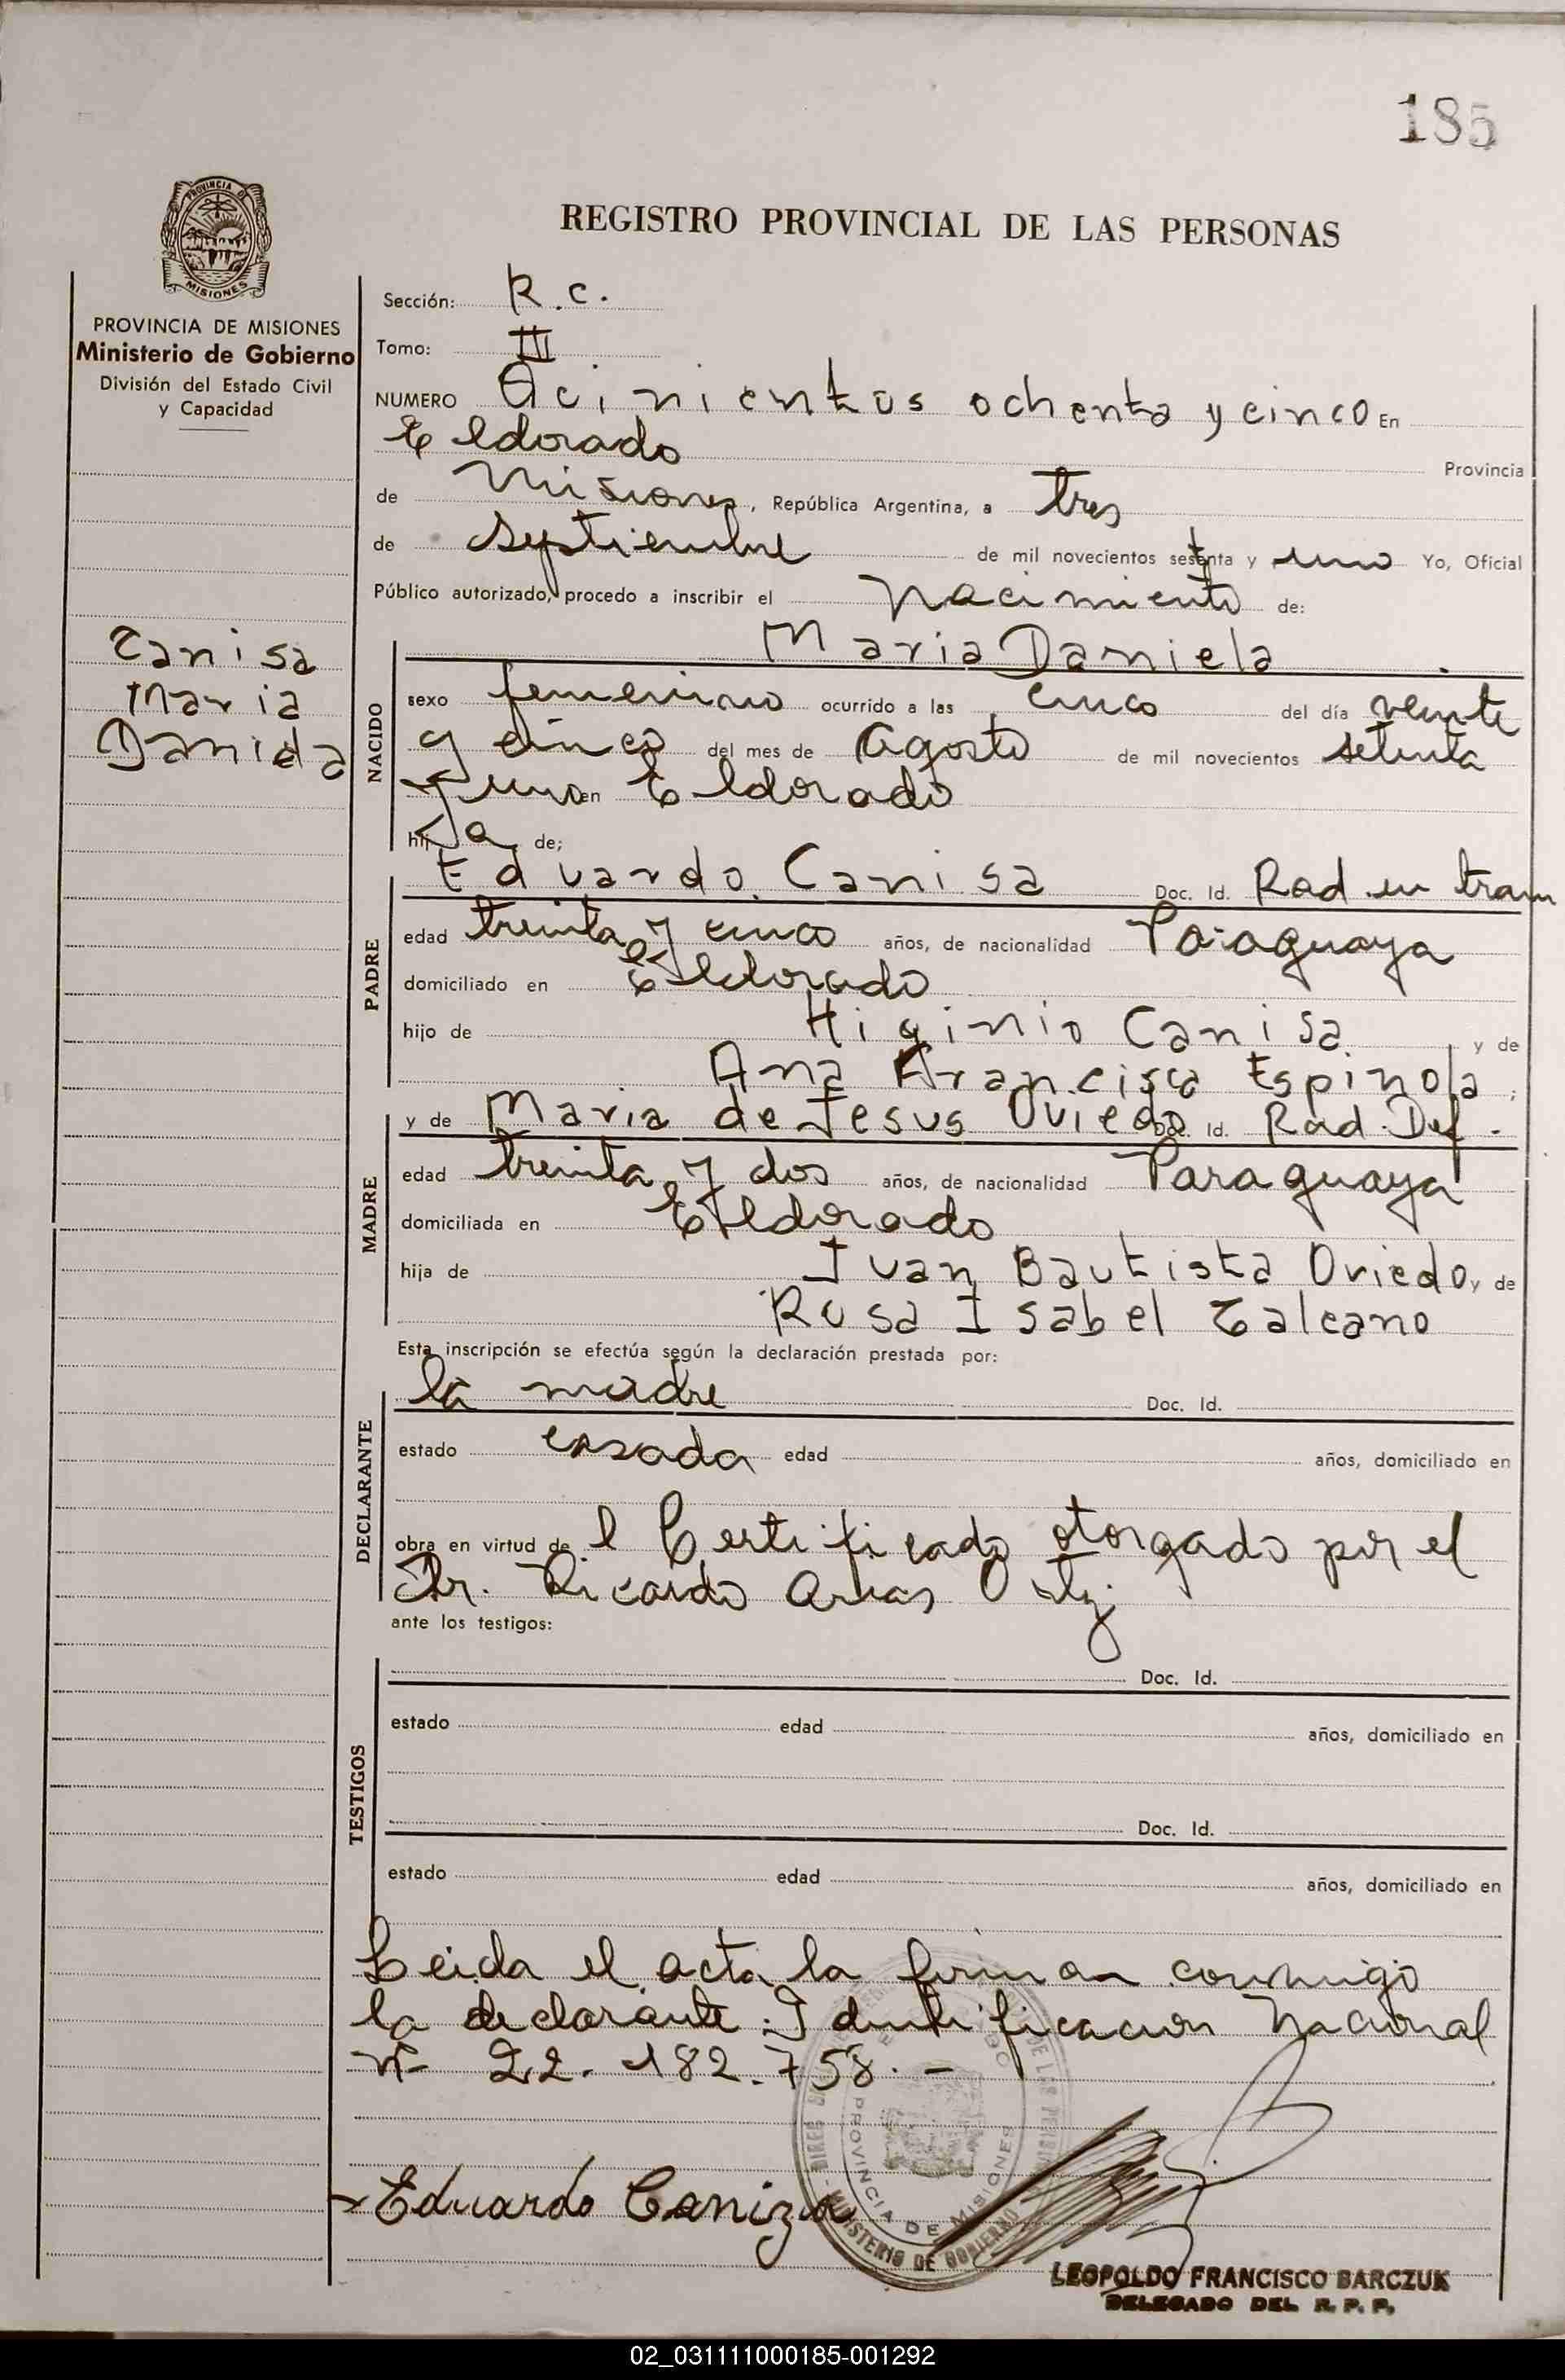 185
PROVINCIA DE
MISIONES
REGISTRO PROVINCIAL DE LAS PERSONAS
PROVINCIA DE MISIONES
Ministerio de Gobierno
División del Estado Civil
y Capacidad
Canisa
Maria
Daniela
Sección: R.C.
Tomo: III
NUMERO Quinientos ochenta y cinco En
Eldorado Provincia
de Misiones, República Argentina, a tres
de Septiembre de mil novecientos setenta y uno Yo, Oficial
Público autorizado, procedo a inscribir el nacimiento de:
NACIDO
Maria Daniela
sexo femenino ocurrido a las cinco del día veinte
y cinco del mes de Agosto de mil novecientos setenta
y uno en Eldorado
hija de;
PADRE
Eduardo Canisa Doc. Id. Rad. en tram
edad treinta y cinco años, de nacionalidad Paraguaya
domiciliado en Eldorado
hijo de Higinio Canisa y de
Ana Francisca Espinola ;
MADRE
y de Maria de Jesus Oviedo Doc. Id. Rad. Def.
edad treinta y dos años, de nacionalidad Paraguaya
domiciliada en Eldorado
hija de Juan Bautista Oviedo y de
Rosa Isabel Galeano
Esta inscripción se efectúa según la declaración prestada por:
DECLARANTE
la madre Doc. Id.
estado casada edad años, domiciliado en
obra en virtud del Certificado otorgado por el
Dr. Ricardo Arias Ortiz
ante los testigos:
TESTIGOS
Doc. Id.
estado edad años, domiciliado en
Doc. Id.
estado edad años, domiciliado en
Leida el acta la firman conmigo
la declarante. Identificacion Nacional
Nº 22.182.758.-
PROVINCIA DE MISIONES
MINISTERIO DE GOBIERNO
Eduardo Caniza
LEOPOLDO FRANCISCO BARCZUK
DELEGADO DEL R. P. P.
02_031111000185-001292